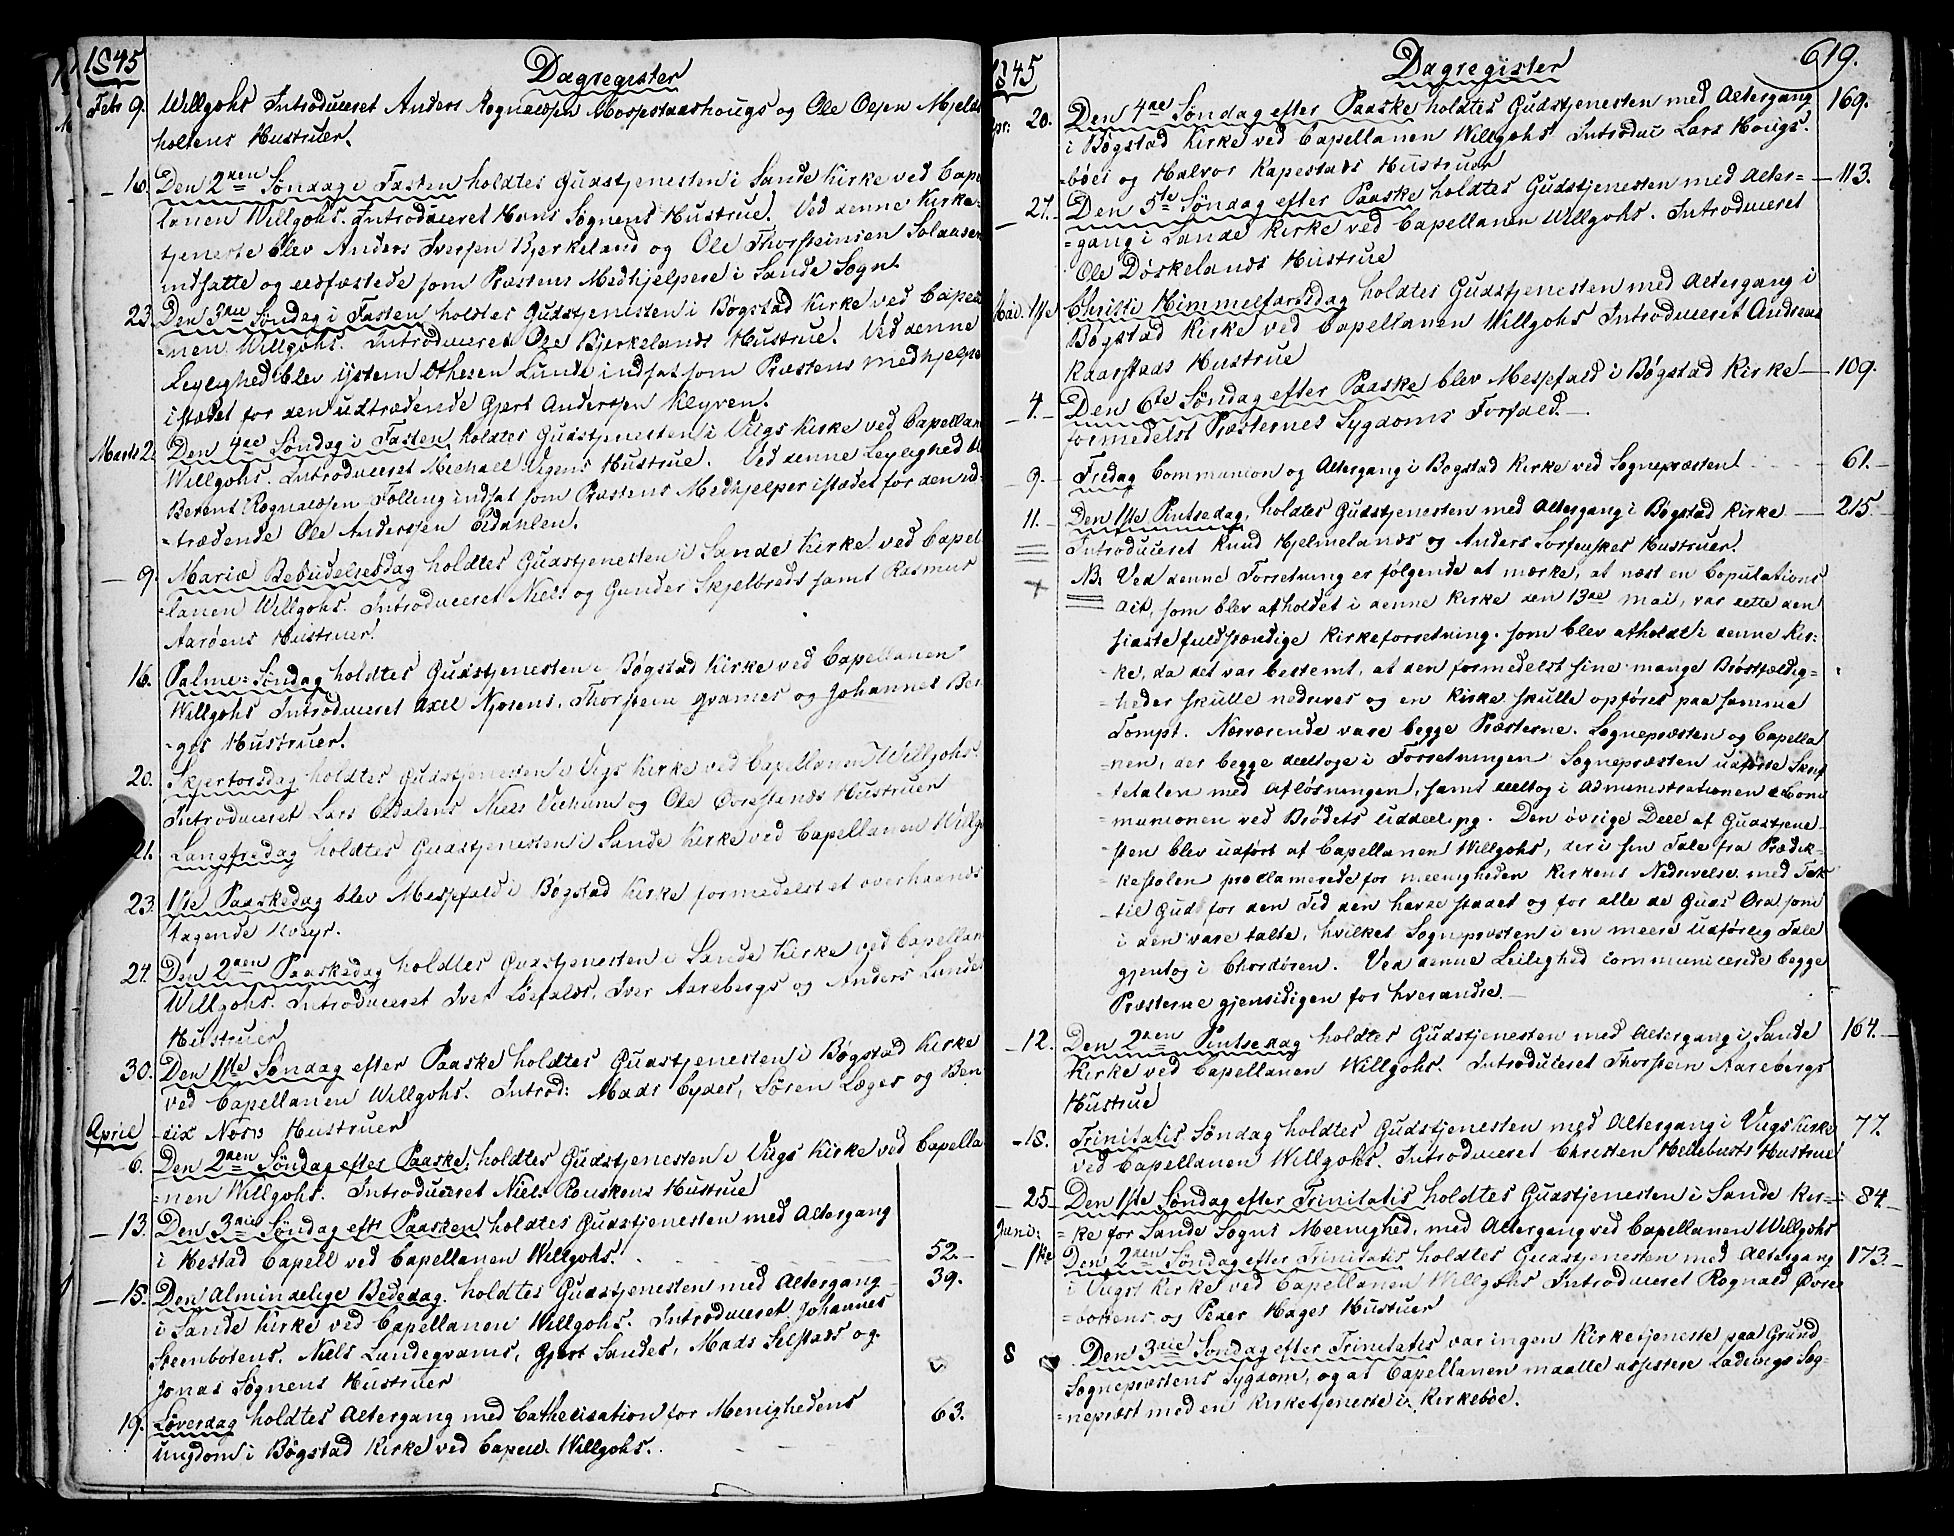 1845
Dagregister
Febr 9. Willgohs Introduceret Anders Rognaldsen Mospestaashougs og Ole Olsen Mjelds
holtens Hustruer.
16. Den 2den Søndag i Fasten holdtes Gudstjenesten i Sande Kirke ved Cape
lanen Willgohs. Introduceret Hans Sognens Hustrue. Ved denne Kirke-
tjeneste blev Anders Iversen Bjerkeland og Ole Thorsteinsen Soldasen
indsatte og edfæstede som Præstens Medhjelpere i Sande Sogn.
23. Den 3die Søndag i Fasten holdtes Gudstjenesten i Bøgstad Kirke ved Capel
=nen Willgohs. Introduceret Ole Bjerkelands Hustrue. Ved denne
Leylighed blev Lunde indsat som Præstens Medhjelper
istædet for den udtrædende Gjert Anderssen Kleyven.
Marts 2. Den 4de Søndag i Fasten holdtes Gudstjenesten i Viigs Kirke ved Capellan
Willgohs. Introduceret Michael Vigens Hustrue. Ved denne Leylighed b
Berent Rognaldsen Følling indsat som Præstens Medhjelper istædet for den ud-
=trædende Ole Anderssen Eldahlen.
9. Mariæ Bebudelsesdag holdtes Gudstjenesten i Sande Kirke ved Capel
=lanen Willgohs. Introduceret Niels og Gunder Skjelbreds samt Rasmus
Aarøens Hustruer.
16. Palme=Søndag holdtes Gudstjenesten i Bøgstad Kirke ved Capellanen
Willgohs Introduceret Axel Njøsens, Thorstein Qvames og Johannes Ber
=ges Hustruer.
20. Skjertorsdag holdtes Gudstjenesten i Viigs Kirke ved Capellanen Willgohs.
Introduceret Lars Eldalens Niels Viehums og Ole Hustruer
21. Langfredag holdtes Gudstjenesten i Sande Kirke ved Capellanen Willgo
23. 1ste Paaskedag blev Messefald i Bøgstad Kirke formedelst et overhaands
tagende Uveyr.
24. Den 2den Paaskedag holdtes Gudstjenesten i Sande Kirke ved Capellan
Willgohs. Introduceret Iver Løefalds, Iver Aarebergs og Anders Lundes
Hustruer
30. Den 1ste Søndag efter Paaske holdtes Gudstjenesten i Bøgstad Kirke
ved Capellanen Willgohs. Introd: Mads Eydes, Søren Læges og Ben
dix Næss Hustruer
April
6. Den 2den Søndag efter Paaske holdtes Gudstjenesten i Viigs Kirke ved Capella
=nen Willgohs. Introduceret Niels Hustrue
13. Den 3die Søndag efter Paasken holdtes Gudstjenesten med Altergang
i Hestad Capell ved Capellanen Willgohs. 52.
15. Den Almindelige Bededag holdtes Gudstjenesten med Altergang 39.
i Sande Kirke ved Capellanen Willgohs. Introduceret Johannes
Steenbotens, Niels Lundeqvams, Gjert Sandes, Mads Selstads og
Jonas Sognens Hustruer
19. Løverdag holdtes Altergang med Cathechisation for Menighedens 63.
Ungdom i Bøgstad Kirke ved Capell. Willgohs.
1845
Dagregister
619.
Apr: 20. Den 4de Søndag efter Paaske holdtes Gudstjenesten med Altergang 169.
i Bøgstad Kirke ved Capellanen Willgohs. Introdu: Lars Hougs-
=bøes og Halvor Kapestads Hustruer
27. Den 5te Søndag efter Paaske holdtes Gudstjenesten med Alter= 113.
=gang i Sande Kirke ved Capellanen Willgohs. Introduceret
Ole Døskelands Hustrue
Mai. 1ste Christi Himmelfartsdag holdtes Gudstjenesten med Altergang i
Bøgstad Kirke ved Capellanen Willgohs Introduceret Andreas
Kaarstads Hustrue 109.
4. Den 6te Søndag efter Paaske blev Messefald i Bøgstad Kirke
formedelst Præsternes Sygdoms Forfald.
9. Fredag Communion og Altergang i Bøgstad Kirke ved Sognepræsten 61.
11. Den 1ste Pintsedag holdtes Gudstjenesten med Altergang i Bøgstad Kirke 215.
Introduceret Knud Hjelmelands og Anders Hustruer.
NB: Ved denne Forretning er følgende at mærke, at næst en Copulations
Act, som blev afholdet i denne Kirke den 13de Mai, var dette den
sidste fuldstændige Kirkeforretning som blev afholdt i denne Kir-
=ke, da det var bestemt, at den formedelst sine mange Brøstfældig=
=heder skulle nedrives og en Kirke skulle opføres paa samme
Tompt. Nærværende vare begge Præsterne, Sognepræsten og Capella
=nen, der begge deeltoge i Forretningen Sognepræsten udførte Skrif
=tetalen med Afløsningen, samt deeltog i Administrationen af Com
=munionen ved Brødets Uddeeling. Den øvrige Deel af Gudstjene-
=sten blev udført af Capellanen Willgohs, der i sin Tale fra Prædik-
=kestolen proclamerede for Meenigheden Kirkens Nedrivelse med Tak
=til Gud for den Tid den havde staaet og for alle de Guds Ord som
i den vare talte, hvilket Sognepræsten i en meere udførlig Tale
gjentog i Chordøren. Ved denne Leilighed communicerede begge
Præsterne gjensidigen for hverandre.
12. Den 2den Pintsedag holdtes Gudstjenesten med Altergang i Sande 164.
Kirke ved Capellanen Willgohs. Introduceret Thorstein Aarebergs
Hustrue
18. Trinitatis Søndag holdtes Gudstjenesten med Altergang i Viigs Kirke 77.
ved Capellanen Willgohs. Introduceret Christen Hellebusts Hustrue
25. Den 1ste Søndag efter Trinitatis holdtes Gudstjenesten i Sande Kir= 84.
=ke for Sande Sogns Meenighed, med Altergang ved Capellanen Willgohs
Juni: 1ste Den 2den Søndag efter Trinitatis holdtes Gudstjenesten med Altergang 173.
i Viigs Kirke ved Capellanen Willgohs Introduceret Rognald Øvre
=bottens og Peder Hages Hustruer
8 Den 3die Søndag efter Trinitatis var ingen Kirketjeneste paa Grund
Sognepræstens Sygdom, og at Capellanen maatte assistere Ladevigs Sog-
=nepræst med en Kirketjeneste i Kirkebøe.